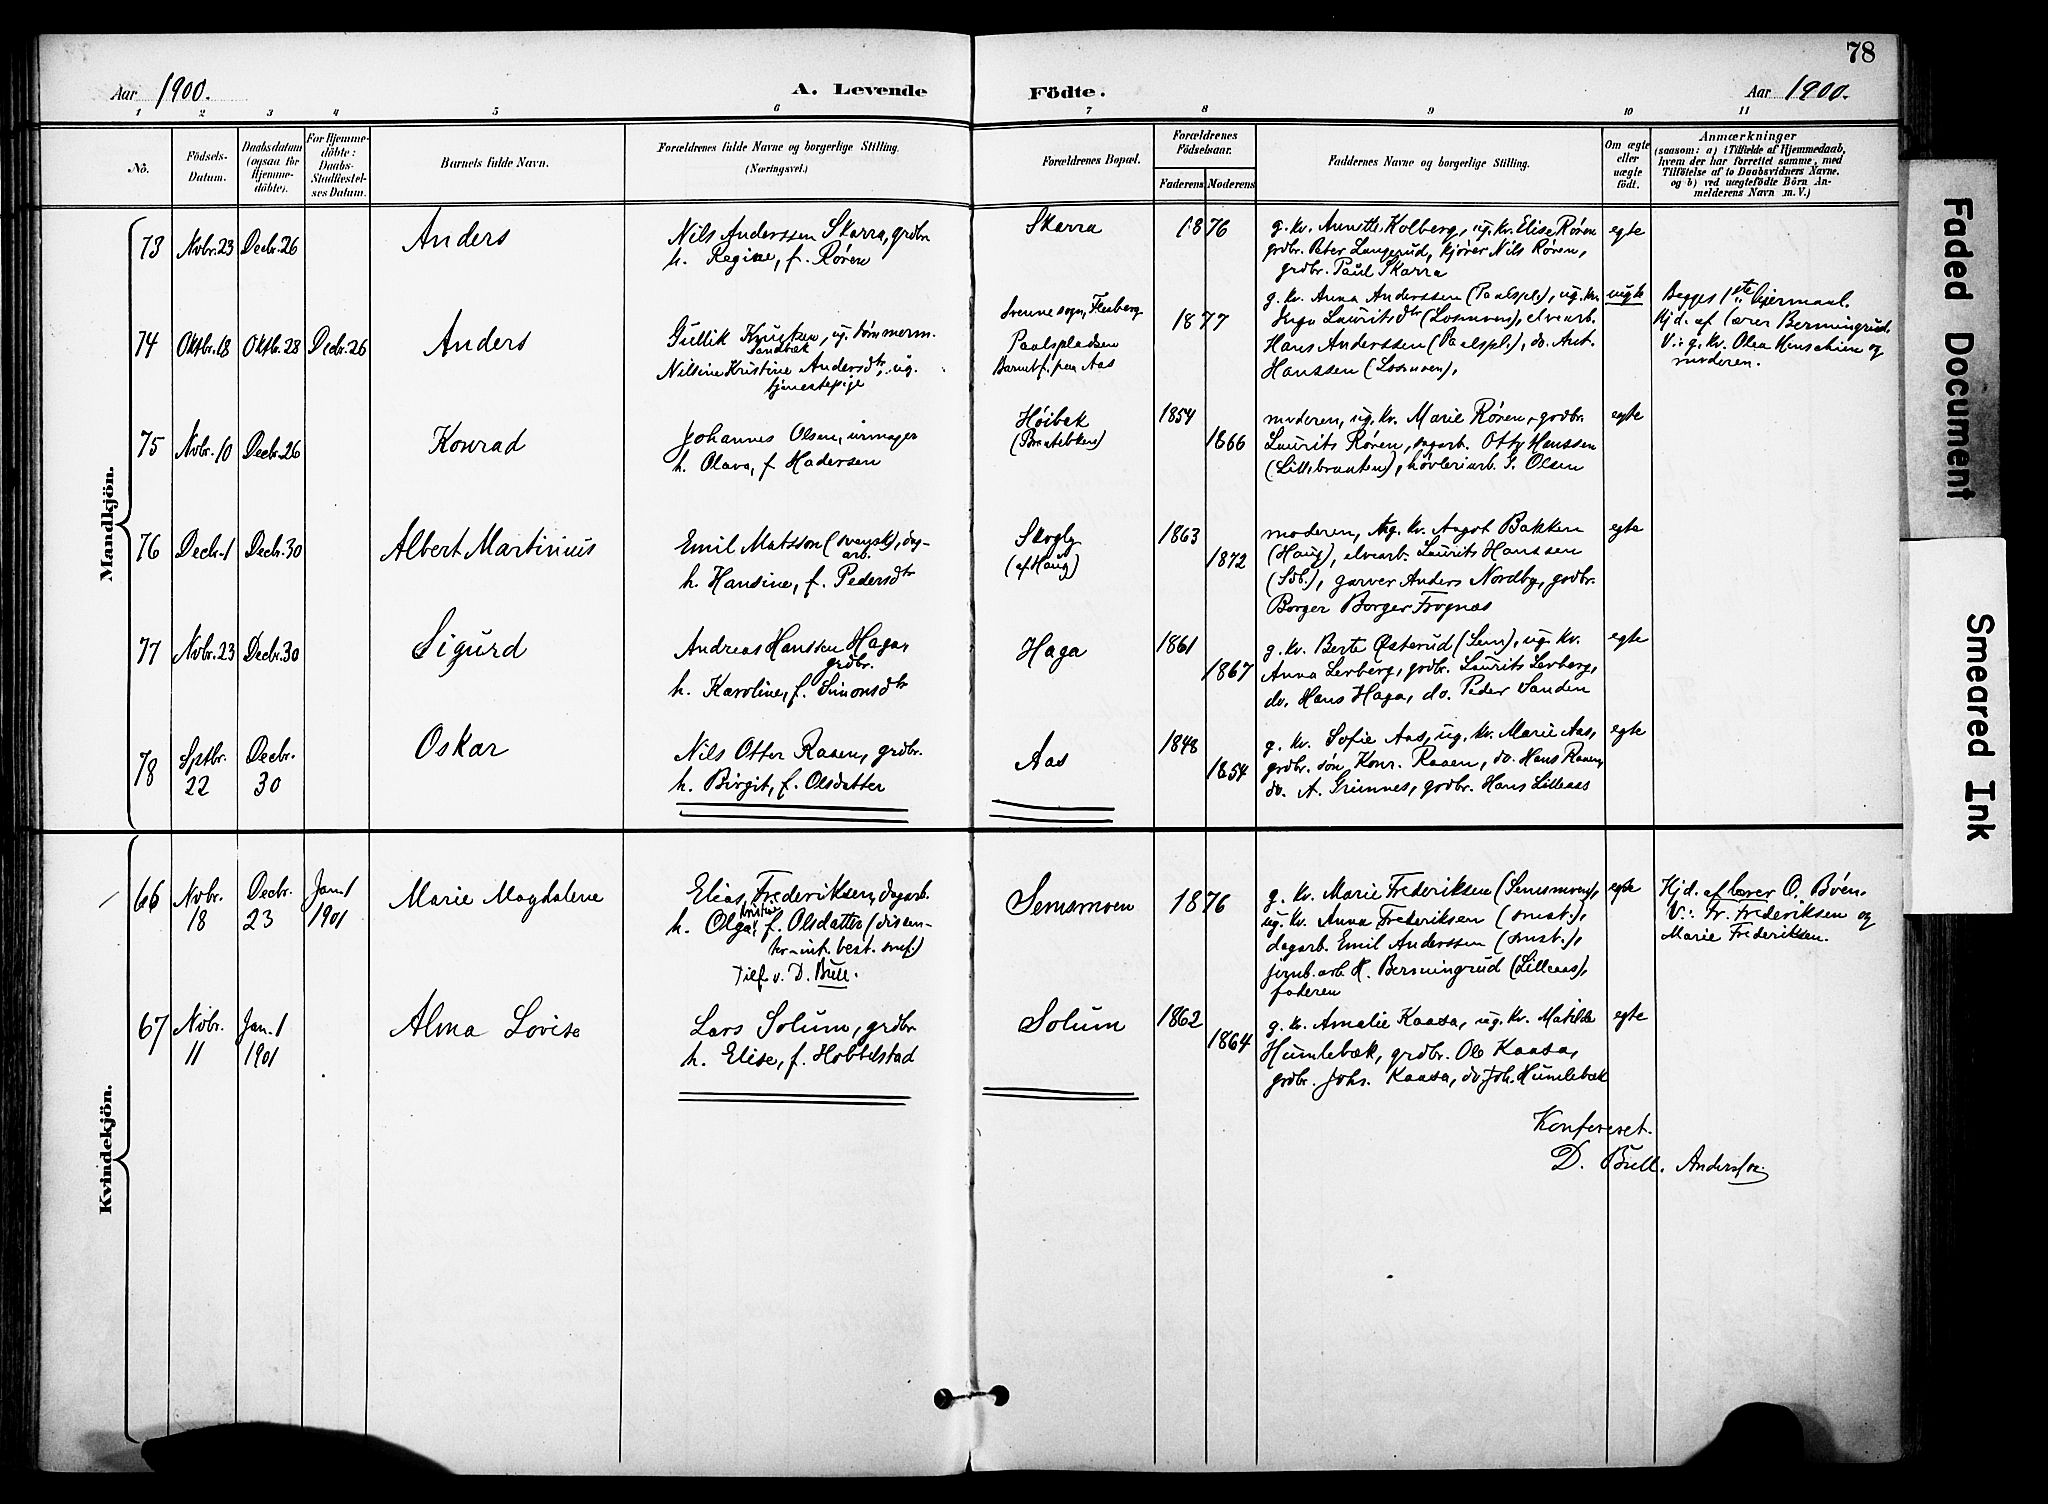 78
Aar 1900.
A. Levende Födte.
Aar 1900.
1 2 3 4 5 6 7 8 9 10 11
No.
Födsels-
Datum.
Daabsdatum
(ogsaa for
Hjemme-
döbte).
For Hjemme-
döbte:
Daabs-
Stadfæstel-
ses Datum.
Barnets fulde Navn.
Forældrenes fulde Navne og borgerlige Stilling.
(Næringsvei.)
Forældrenes Bopæl.
Forældrenes
Födselsaar.
Faderens Moderens
Faddernes Navne og borgerlige Stilling.
Om ægte
eller
uægte
födt.
Anmærkninger
(saasom: a) i Tilfælde af Hjemmedaab,
hvem der har forrettet samme, med
Tilföielse af to Daabsvidners Navne,
og b) ved uægtefödte Börn An-
melderens Navn m. V.)
Mandkjön.
73 Novbr. 23 Decbr. 26
Anders
Nils Anderssen Skarra, grdbr.
h. Regine, f. Røren
Skarra
1876
g. kv. Annette Kolberg, ug. kv. Elise Røren
grdbr. Peter Langerud, kjører Nils Røren,
grdbr. Paul Skarra
egte
74 Oktbr. 18 Oktbr. 28 Decbr. 26
Anders
Gullik Knutsen, ug. tømmerm.
Sandbæk
Nilsine Kristine Andersdtr, ug.
tjenestepige
Svenne sogn, Flesberg
Paalspladsen
Barnet f. paa Aas
1877
g. kv. Anna Anderssen (Paalspl.), ug. kv.
Inga Lauritsdtr (Losmoen), elvearb.
Hans Anderssen (Paalspl.), do. Ant.
Hanssen (Losmoen),
uegte
Begges 1ste Leiermaal.
Hjd. af lærer Bermingrud.
V: g. kv. Olea og
moderen.
75 Novbr. 10 Decbr. 26
Konrad
Johannes Olsen, urmager
h. Olava, f. Hadersen
Høibek
1854
1866
moderen, ug. kv. Marie Røren, grdbr.
Laurits Røren, dagarb. Otto Hanssen
(Lillebraaten), høvleriarb. G. Olsen
egte
76 Decb. 1 Decb. 30
Albert Martinius
Emil Matsson (svensk), dag-
arb.
h. Hansine, f. Pedersdtr
Skogly
(af Haug)
1863
1872
moderen, ug. kv. Aagot Bakken
(Haug), elvearb. Laurits Hanssen
(Sdb.), garver Anders Nordby, grdbr.
Borger Borger Frognæs
egte
77 Novbr. 23 Decbr. 30
Sigurd
Andreas Hanssen Haga,
grdbr.
h. Karoline, f. Simonsdtr
Haga
1861
1867
g. kv. Berte Østerud (Sem), ug. kv.
Anna Lerberg, grdbr. Laurits Lerberg,
do. Hans Haga, do. Peder Sanden
egte
78 Sptbr. 22 Decbr. 30
Oskar
Nils Otter Raaen, grdbr.
h. Birgit, f. Olsdatter
Aas
1848
1854
g. kv. Sofie Aas, ug. kv. Marie Aas,
grdbr. søn Konr. Raaen, do. Hans Raaen,
do. A. Grimnes, grdbr. Hans Lilleaas
egte
Kvindekjön.
66 Novbr. 18 Decbr. 23 Jan. 1 1901
Marie Magdalene
Elias Frederiksen, dagarb.
kristine
h. Olga, f. Olsdatter (dissen-
ter-int. best. smf.)
Tilf. v. D. Bull.
Semsmoen
1876
g. kv. Marie Frederiksen (Semsmoen),
ug. kv. Anna Frederiksen (smst.),
dagarb. Emil Anderssen (smst.),
jernb. arb. H. Bermingrud (Lilleaas),
faderen
egte
Hjd. af lærer O. Bøen.
V: Fr. Frederiksen og
Marie Frederiksen.
67 Novbr. 11 Jan. 1 1901
Alma Lovise
Lars Solum, grdbr
h. Elise, f. Hobbelstad
Solum
1862
1864
g. kv. Amalie Kaasa, ug. kv. Matilde
Humlebæk, grdbr. Ole Kaasa,
grdbr. Johs. Kaasa, do. Joh. Humlebæk
egte
Konfereret.
D. Bull. Anderssen
Faded Document
Smeared Ink